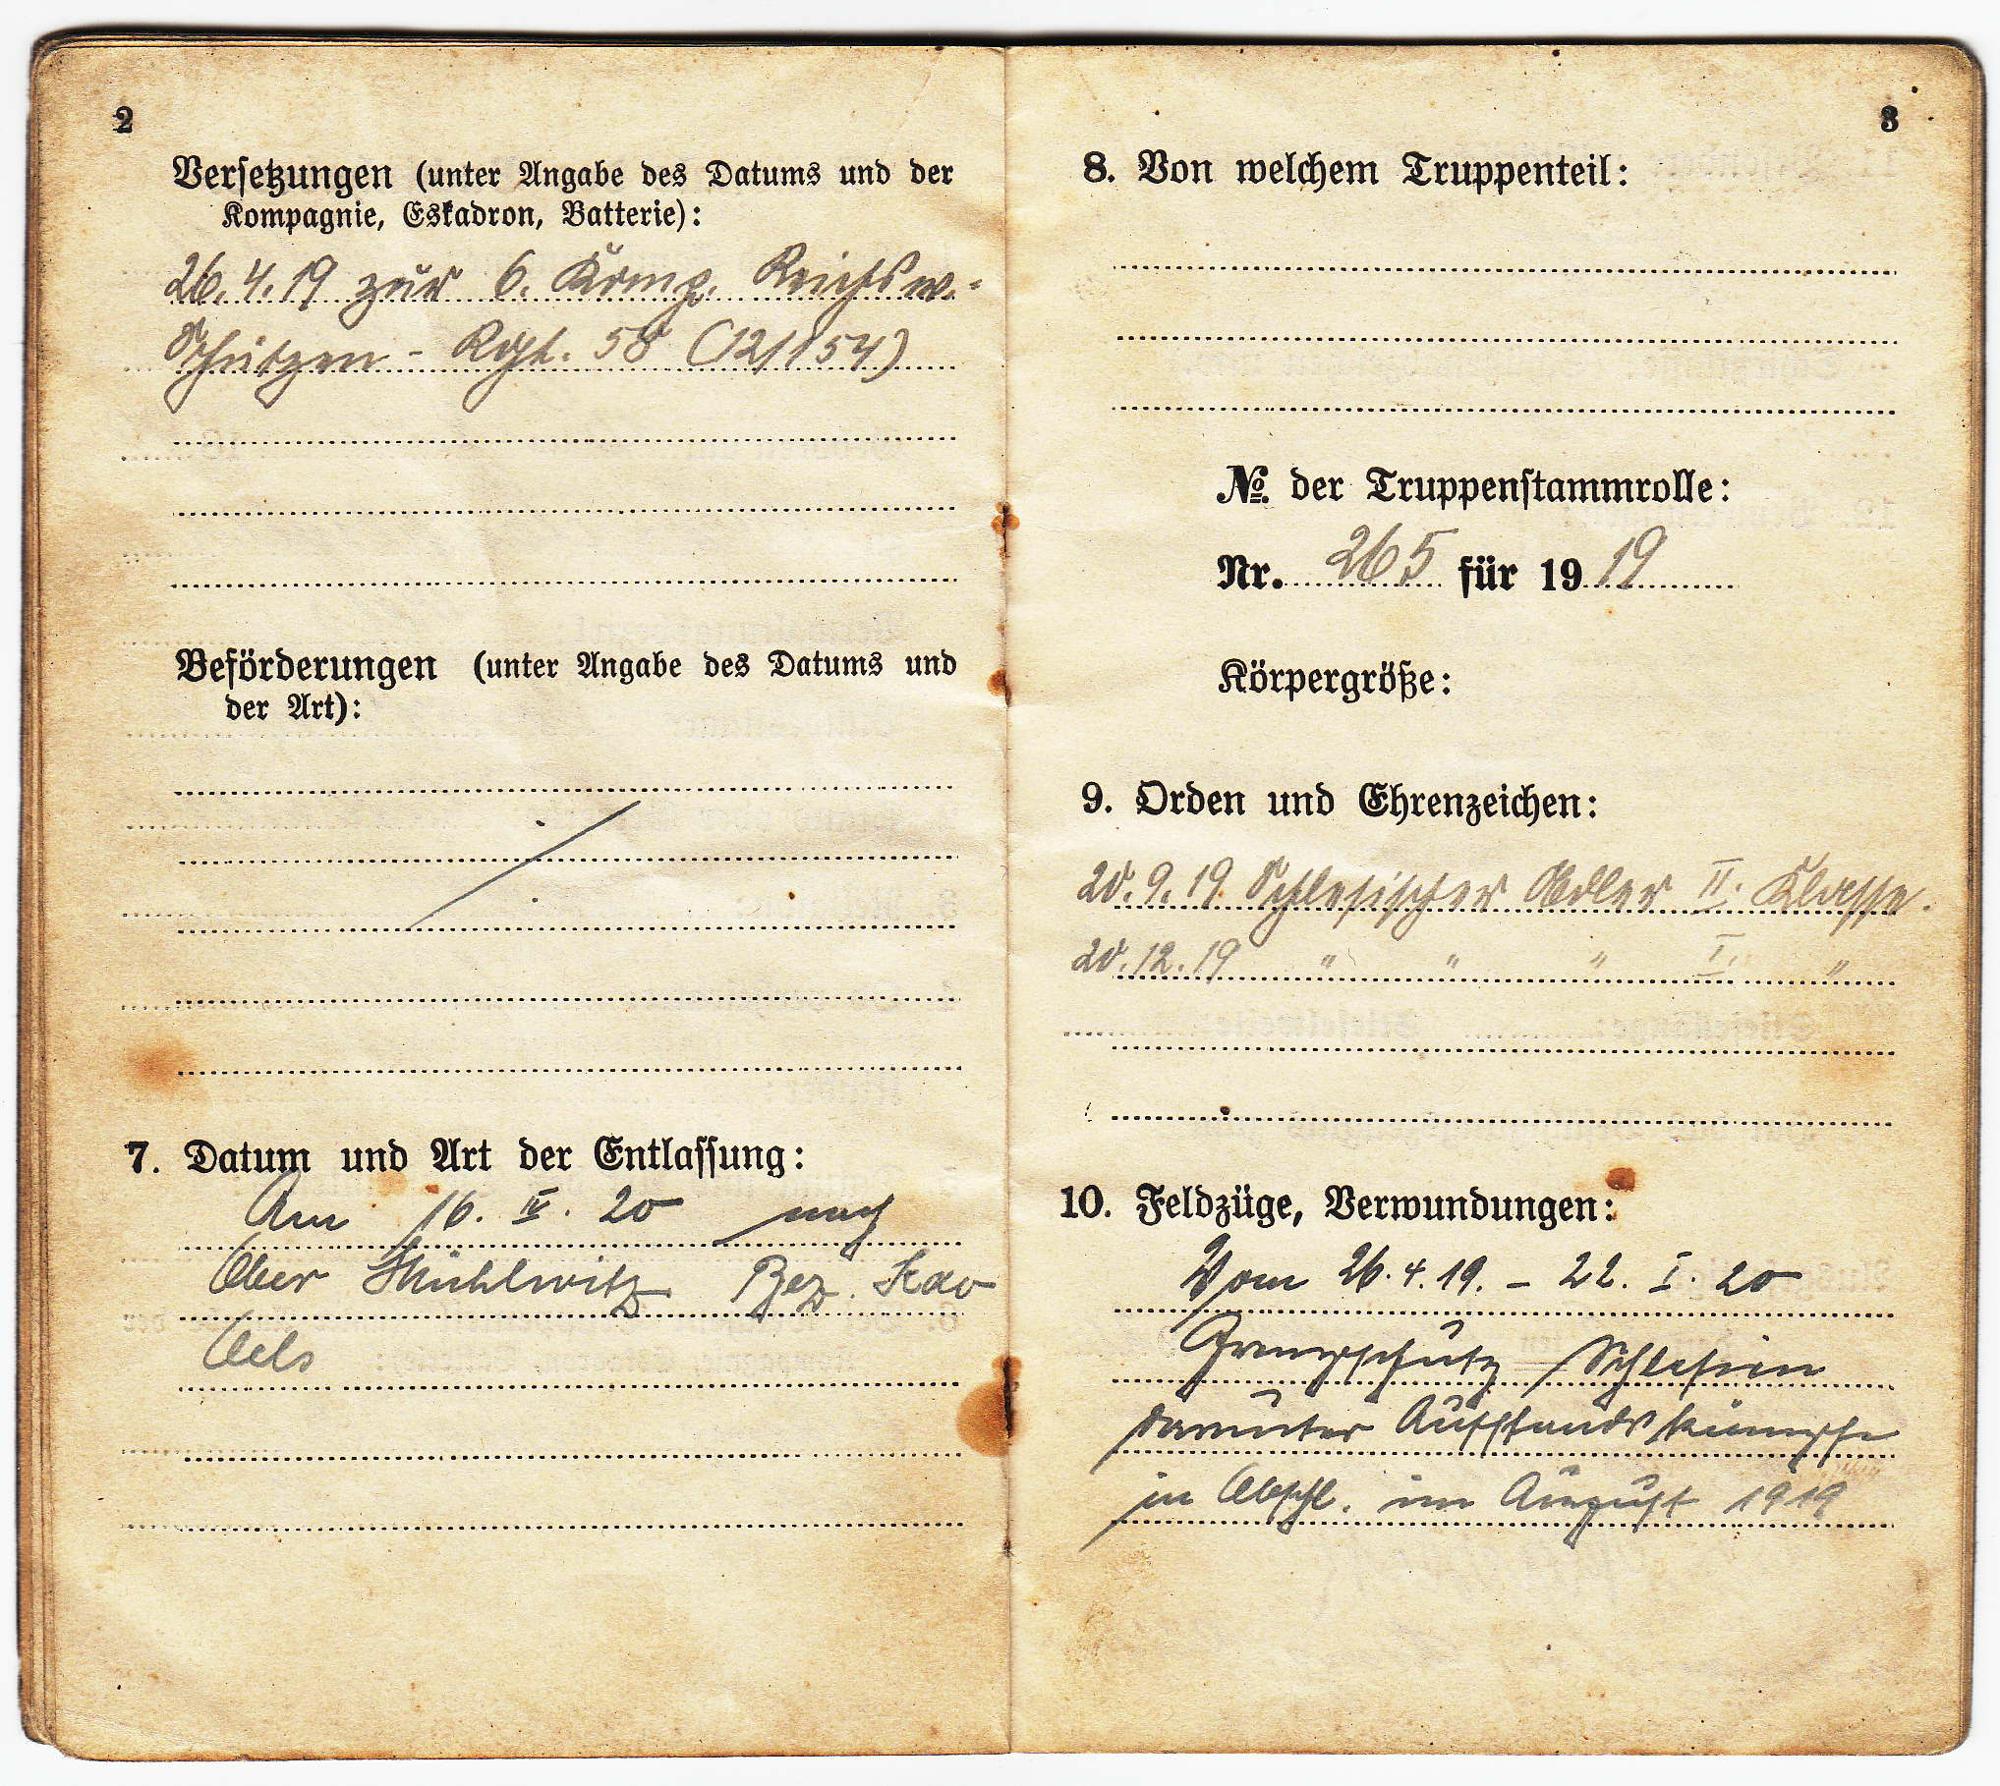 2
Versetzungen (unter Angabe des Datums und der
Kompagnie, Eskadron, Batterie):
26.4.19 zur 6. Komp. Reichsw.-
Schützen-Rgt. 58 (12/154)
Beförderungen (unter Angabe des Datums und
der Art):
7. Datum und Art der Entlassung:
Am 16. IV. 20 nach
Ober Mühlwitz Bez. Kdo
Oels
3
8. Von welchem Truppenteil:
№ der Truppenstammrolle:
Nr. 265 für 1919
Körpergröße:
9. Orden und Ehrenzeichen:
20.9.19 Schlesischer Adler II. Klasse.
20.12.19 " " " I. "
10. Feldzüge, Verwundungen:
Vom 26.4.19. – 22. I. 20
Grenzschutz Schlesien
darunter Aufstandskämpfe
in Obschl. im August 1919